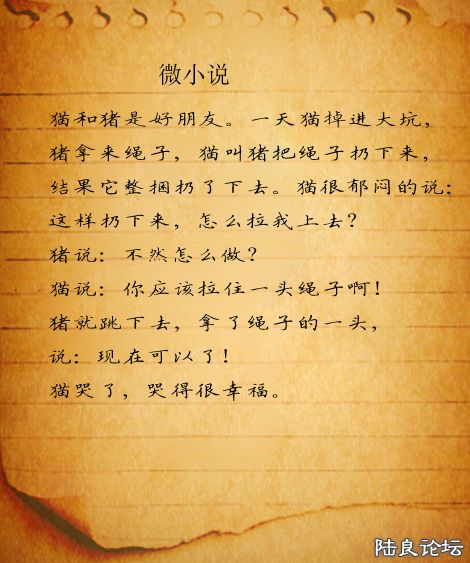 微小说
猫和猪是好朋友。一天猫掉进大坑，
猪拿来绳子，猫叫猪把绳子扔下来，
结果它整捆扔了下去。猫很郁闷的说：
这样扔下来，怎么拉我上去？
猪说：不然怎么做？
猫说：你应该拉住一头绳子啊！
猪就跳下去，拿了绳子的一头，
说：现在可以了！
猫哭了，哭得很幸福。
陆良论坛